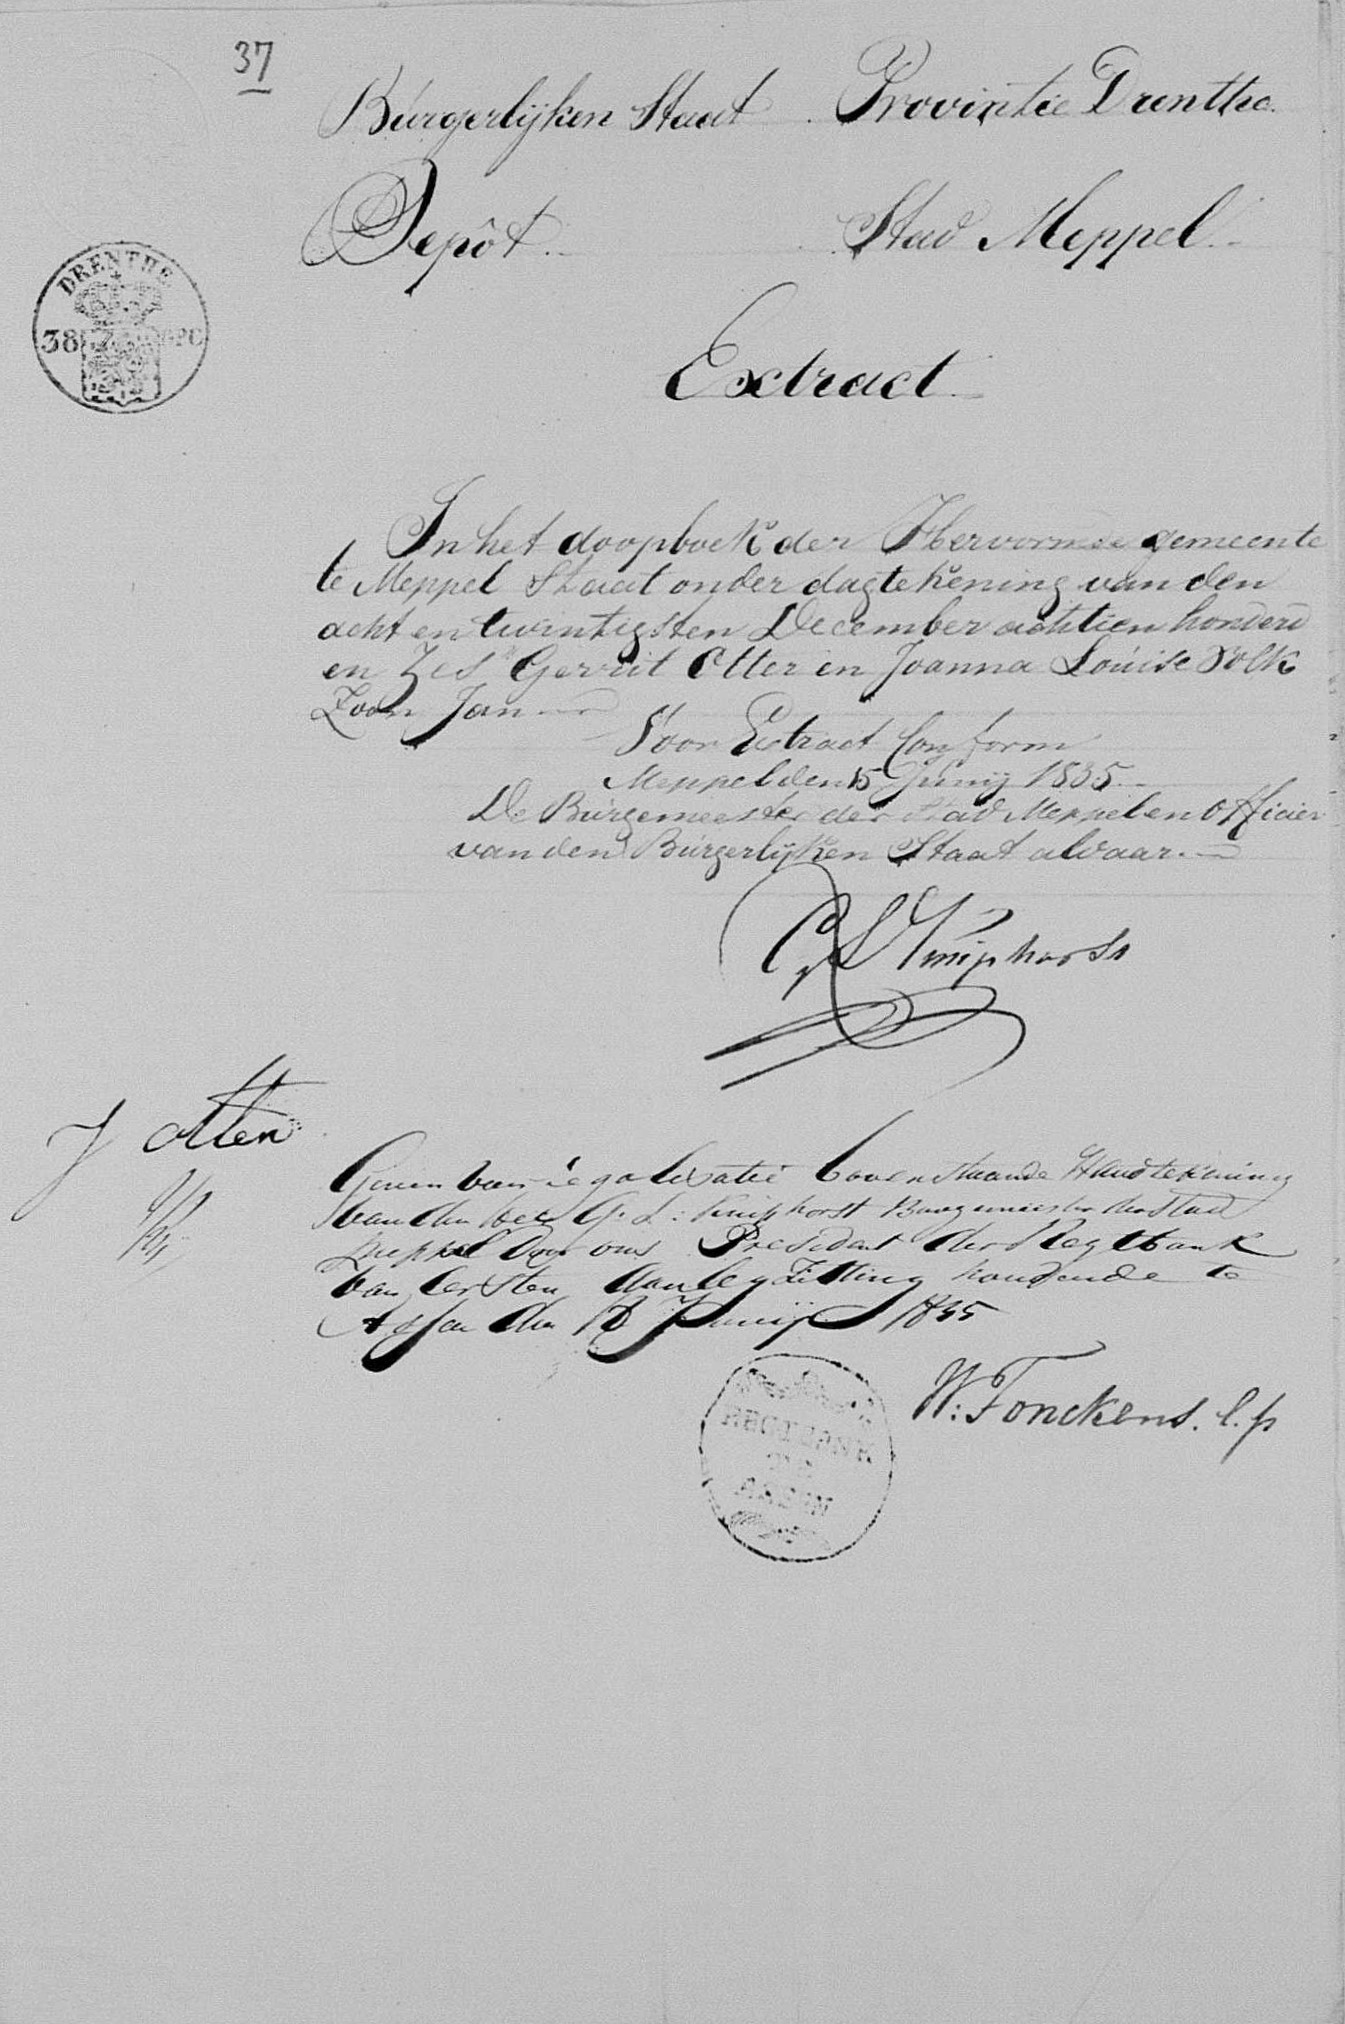 37
Burgerlijken Staat Provintie Drenthe.
Depôt. Stad Meppel.
DRENTHE
38
Extract.
In het doopboek der Hervormde gemeente
te Meppel Staat onder dagtekening van den
acht en twintigsten December achtien honderd
en Zes Gerrit Otter en Joanna Louise
Zoon Jan
Voor Extract Conform
Meppel den 15 Junij 1835.
De Burgemeester der Stad Meppel en Officier
van den Burgerlijken Staat alvaar.
Kniphorst
J Otten
bovenstaande Handtekening
van den heer G. L: Kniphorst Burgemeester der Stad
Meppel Door ons President der Regtbank
van Eersten Aanleg Zitting houdende te
Assen den Junij 1835
W: Tonckens. l. p
ASSEN